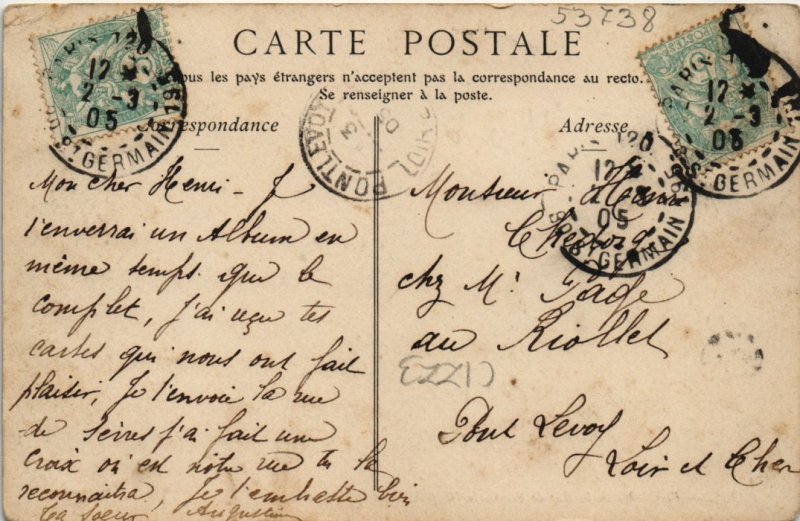 53738
CARTE POSTALE
ous les pays étrangers n'acceptent pas la correspondance au recto.
Se renseigner à la poste.
Correspondance
Adresse
Mon cher Henri - J
t'enverrai un Album en
même temps que le
complet, j'ai reçu tes
cartes qui nous ont fait
plaisir, Je t'envoie la rue
de Sèvres j'ai fait une
croix où est notre rue tu la
reconnaitra, Je t'embrasse bien
Ta Soeur Augustine
Monsieur
chez Mr
au Riollet
Pont Levoy
Loir et Cher
PARIS 120
12 *
2 -3
05
BD ST GERMAIN 195
PARIS
12 *
2 -3
05
ST GERMAIN
PARIS 120
12 *
05
BD ST GERMAIN 195
PONTLEVOY